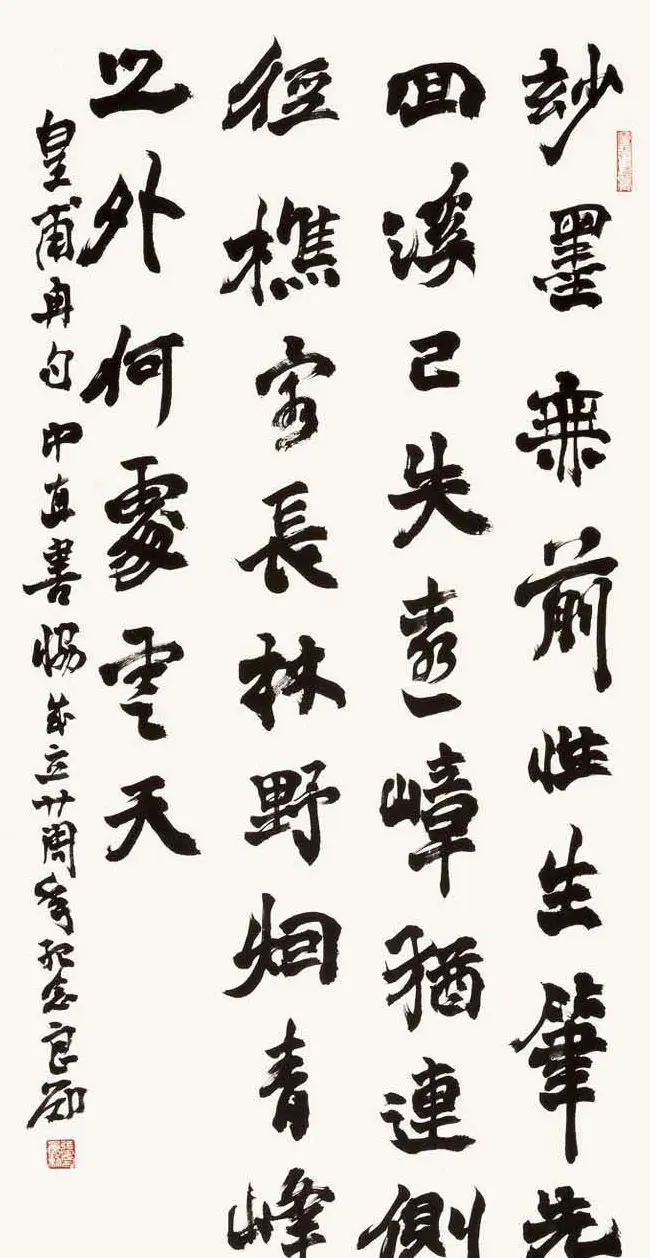 玅墨無前性生筆先
回溪已失遠嶂猶連側
徑樵客長林野烟青峰
之外何處雲天
皇甫冉句中直書協成立廿周年紀念良勛